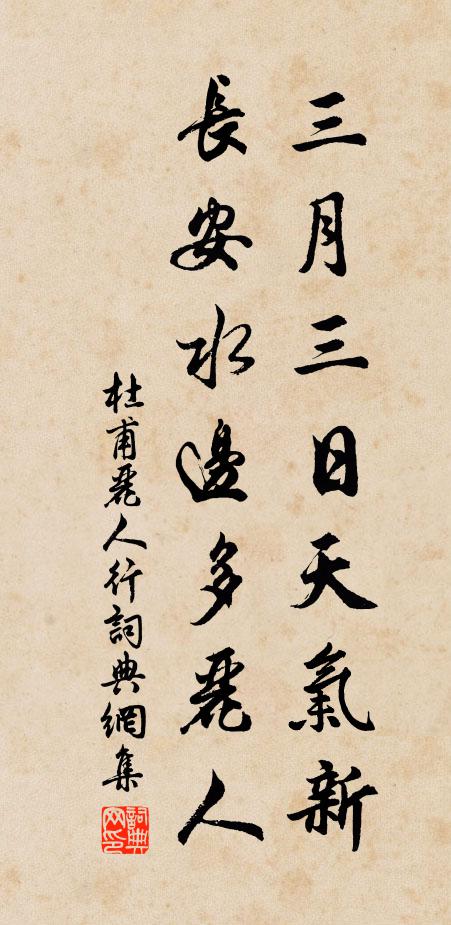 三月三日天氣新
長安水邊多麗人
杜甫麗人行詞典網集
詞典网印